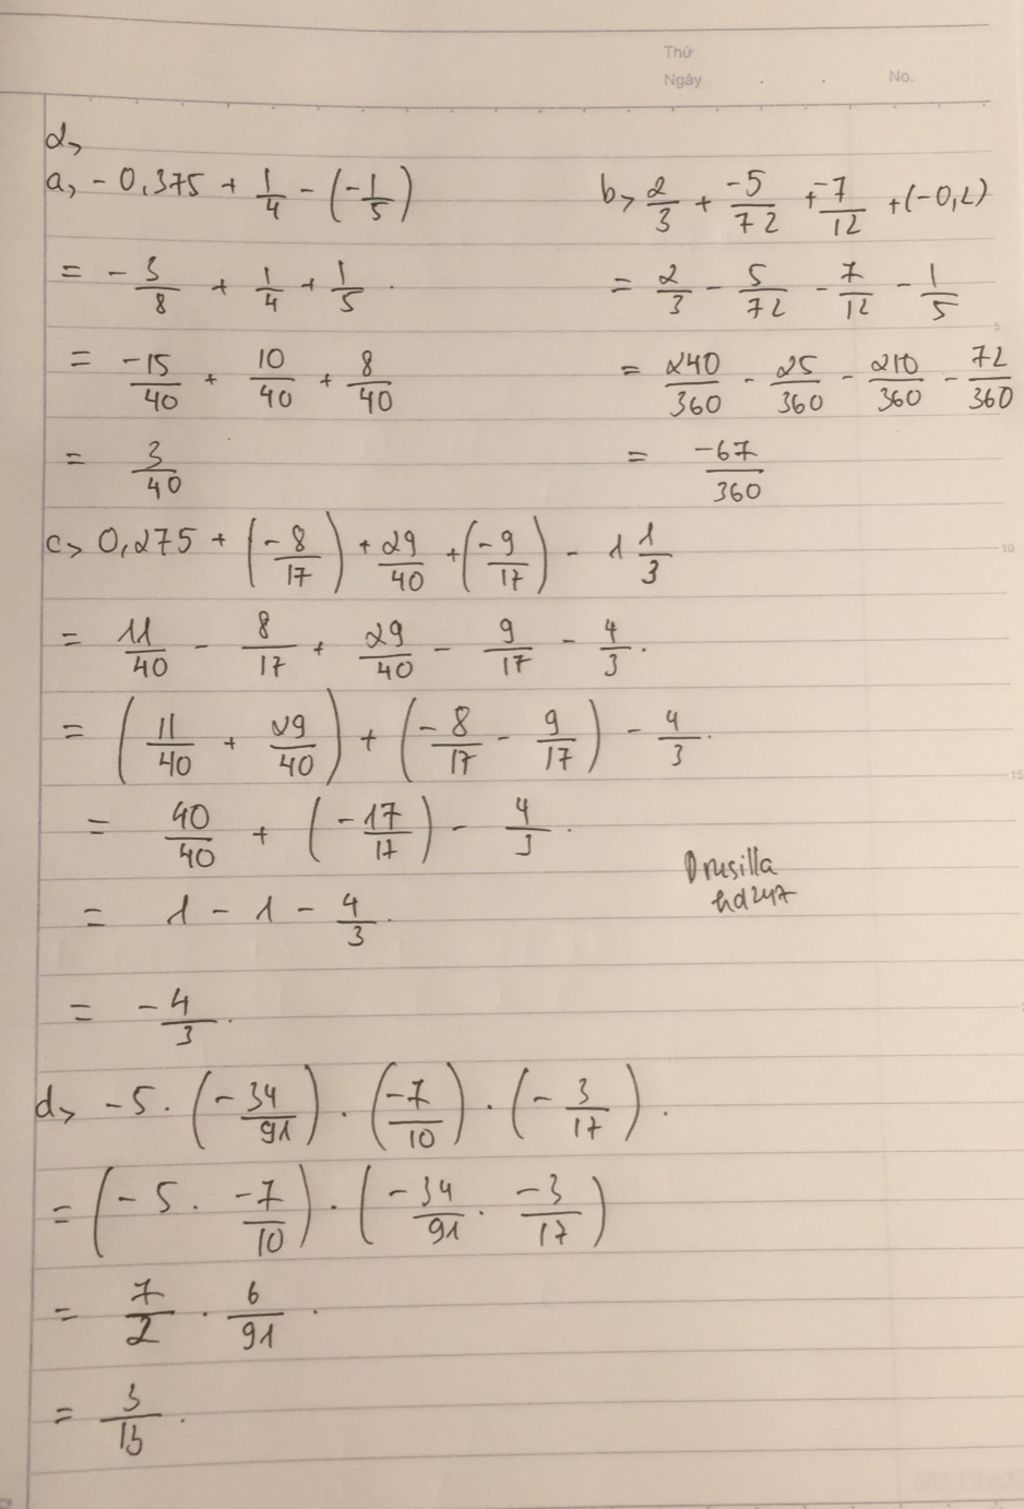 Thứ
Ngày . . No.
2,
a, - 0,375 + 1/4 - (-1/5)
= - 3/8 + 1/4 + 1/5 .
= -15/40 + 10/40 + 8/40
= 3/40
b, 2/3 + -5/72 + -7/12 + (-0,2)
= 2/3 - 5/72 - 7/12 - 1/5
= 240/360 - 25/360 - 210/360 - 72/360
= -67/360
5
c, 0,275 + (-8/17) + 29/40 + (-9/17) - 1 1/3
10
= 11/40 - 8/17 + 29/40 - 9/17 - 4/3 .
= (11/40 + 29/40) + (-8/17 - 9/17) - 4/3 .
15
= 40/40 + (-17/17) - 4/3 .
= 1 - 1 - 4/3 .
= -4/3 .
Drusilla
hd247
d, -5 . (-34/91) . (-7/10) . (-3/17) .
= (-5 . -7/10) . (-34/91 . -3/17)
= 7/2 . 6/91 .
= 3/13 .